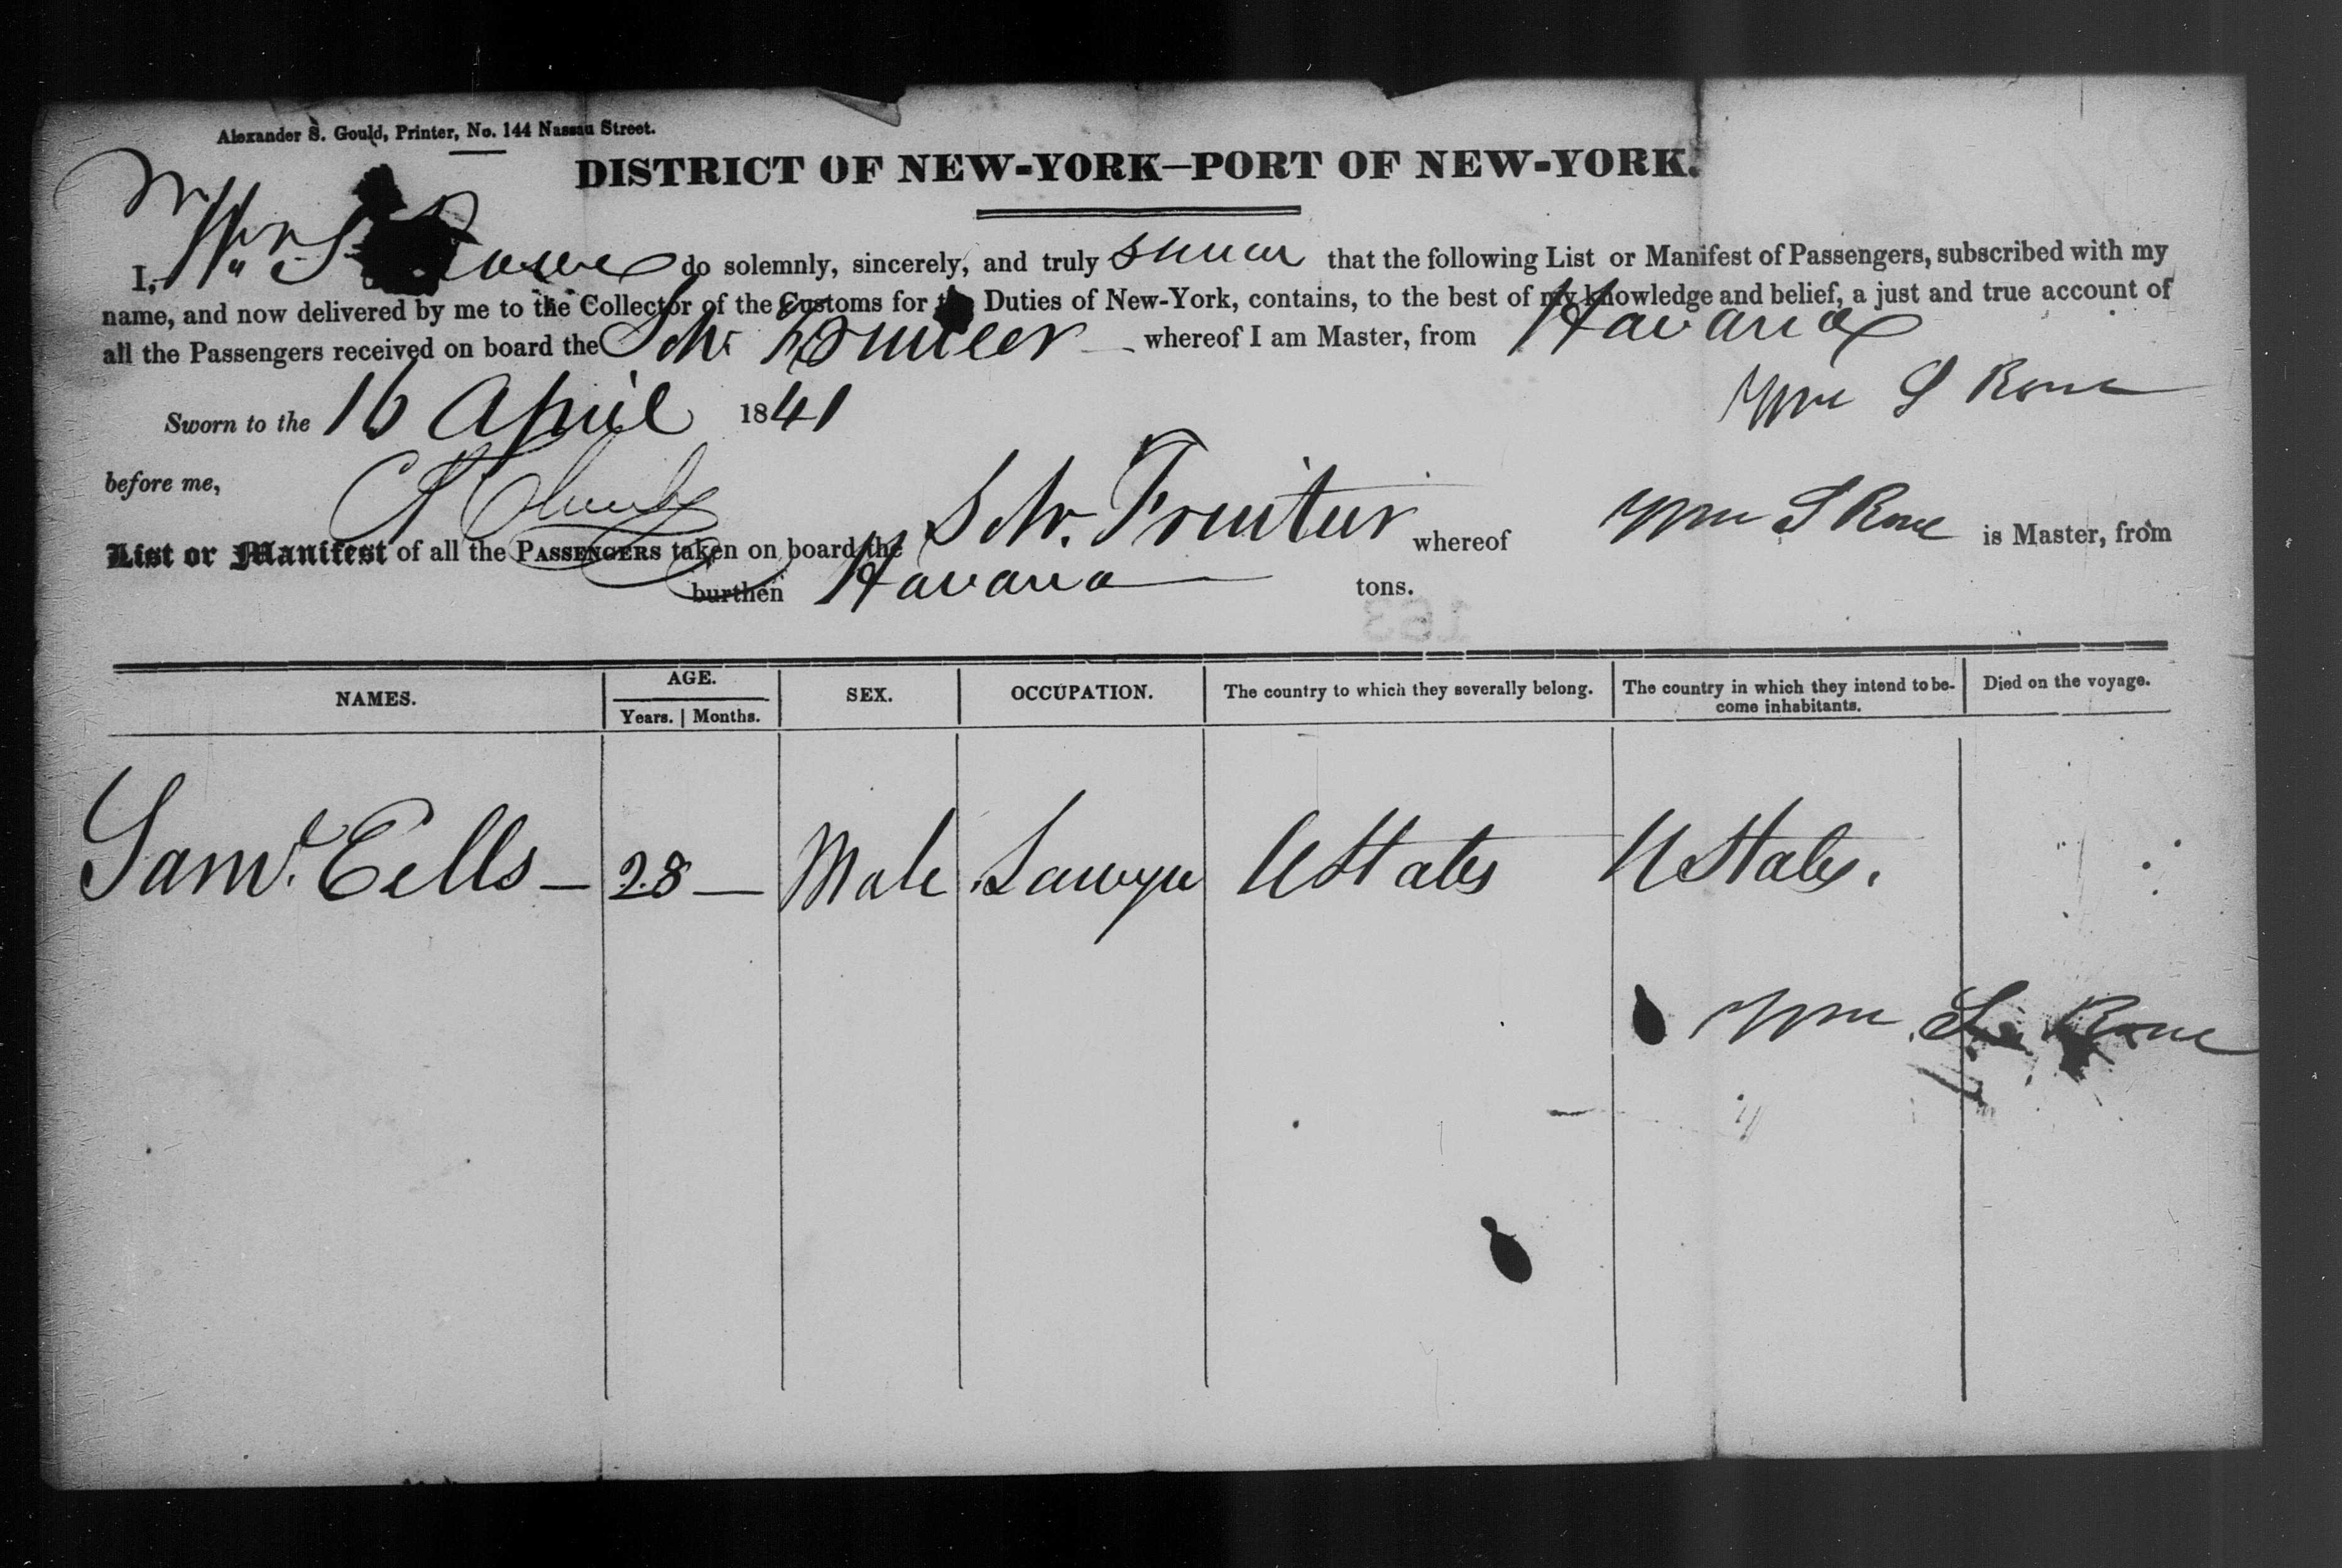 Alexander S. Gould, Printer, No. 144 Nassau Street.
DISTRICT OF NEW-YORK—PORT OF NEW-YORK.
I, Wm S Rowe do solemnly, sincerely, and truly swear that the following List or Manifest of Passengers, subscribed with my
name, and now delivered by me to the Collector of the Customs for the Duties of New-York, contains, to the best of my knowledge and belief, a just and true account of
all the Passengers received on board the Schr whereof I am Master, from Havana
Wm S Rowe
Sworn to the 16 April 1841
before me,
List or Manifest of all the PASSENGERS taken on board the Schr. Fruiteer whereof Wm S Rowe is Master, from
burthen Havana tons.
163
NAMES. AGE. SEX. OCCUPATION. The country to which they severally belong. The country in which they intend to be- Died on the voyage.
Years. Months. come inhabitants.
Saml. Eells — 28 — Male Lawyer UStates UStates.
Wm S Rowe